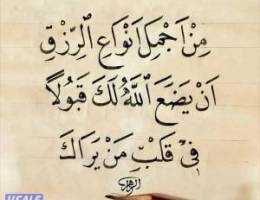 مِنْ اَجْمَلِ اَنْوَاعِ الرِّزْقِ
اَنْ يَضَعَ اللّٰهُ لَكَ قَبُولاً
فِيْ قَلْبِ مَنْ يَرَاكَ